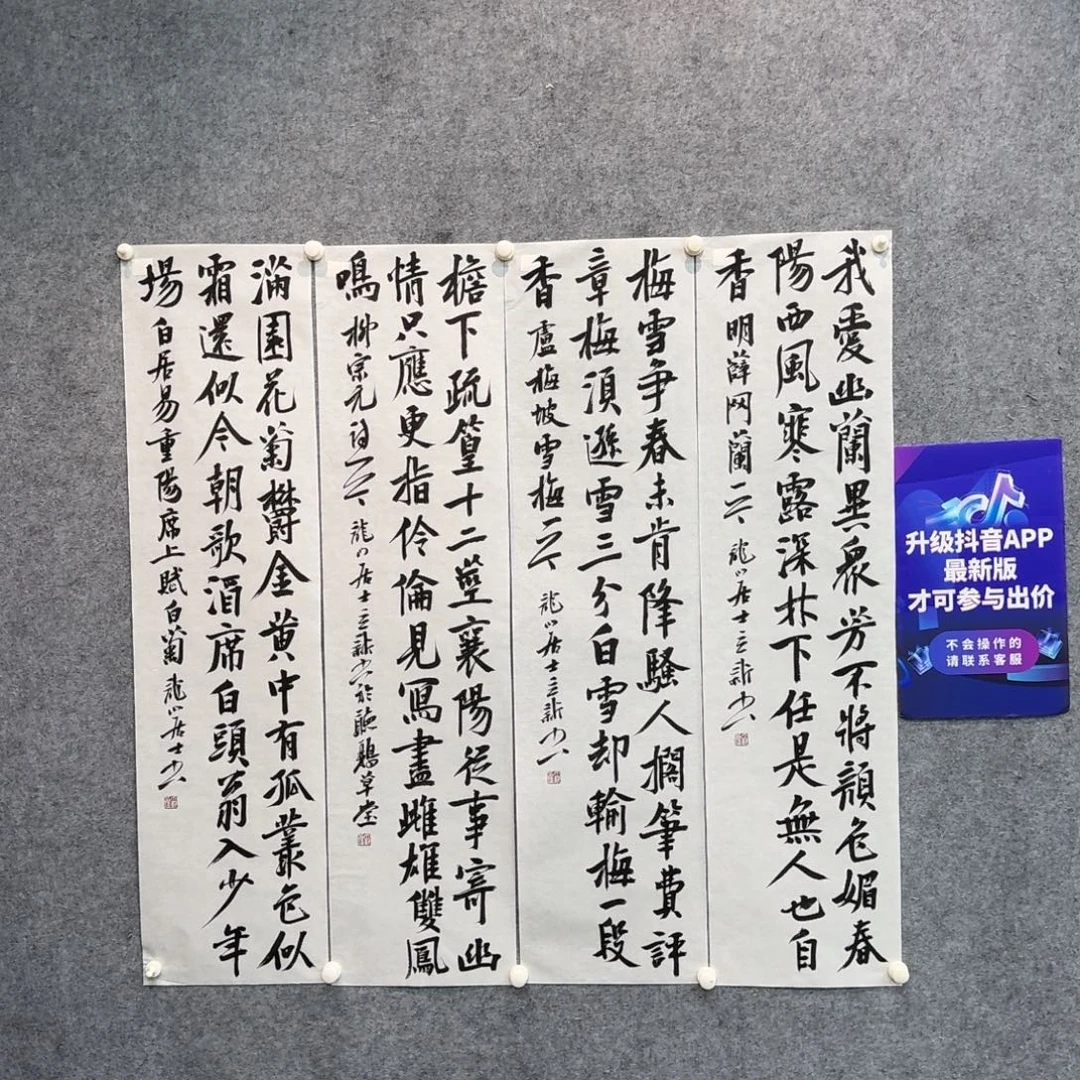 我愛幽蘭異衆芳不將顏色媚春
陽西風寒露深林下任是無人也自
香 明薛网蘭一首 龍山居士立新書
梅雪争春未肯降騷人擱筆費評
章梅須遜雪三分白雪却輸梅一段
香 盧梅坡雪梅一首 龍山居士立新書
檐下疏篁十二莖襄陽従事寄幽
情只應更指伶倫見寫盡雌雄雙鳳
鳴 柳宗元诗一首 龍山居士立新書於聽鸝草堂
滿園花菊欝金黄中有孤叢色似
霜還似今朝歌酒席白頭翁入少年
場 白居易重陽席上賦白菊 龍山居士書
升级抖音APP
最新版
才可参与出价
不会操作的
请联系客服